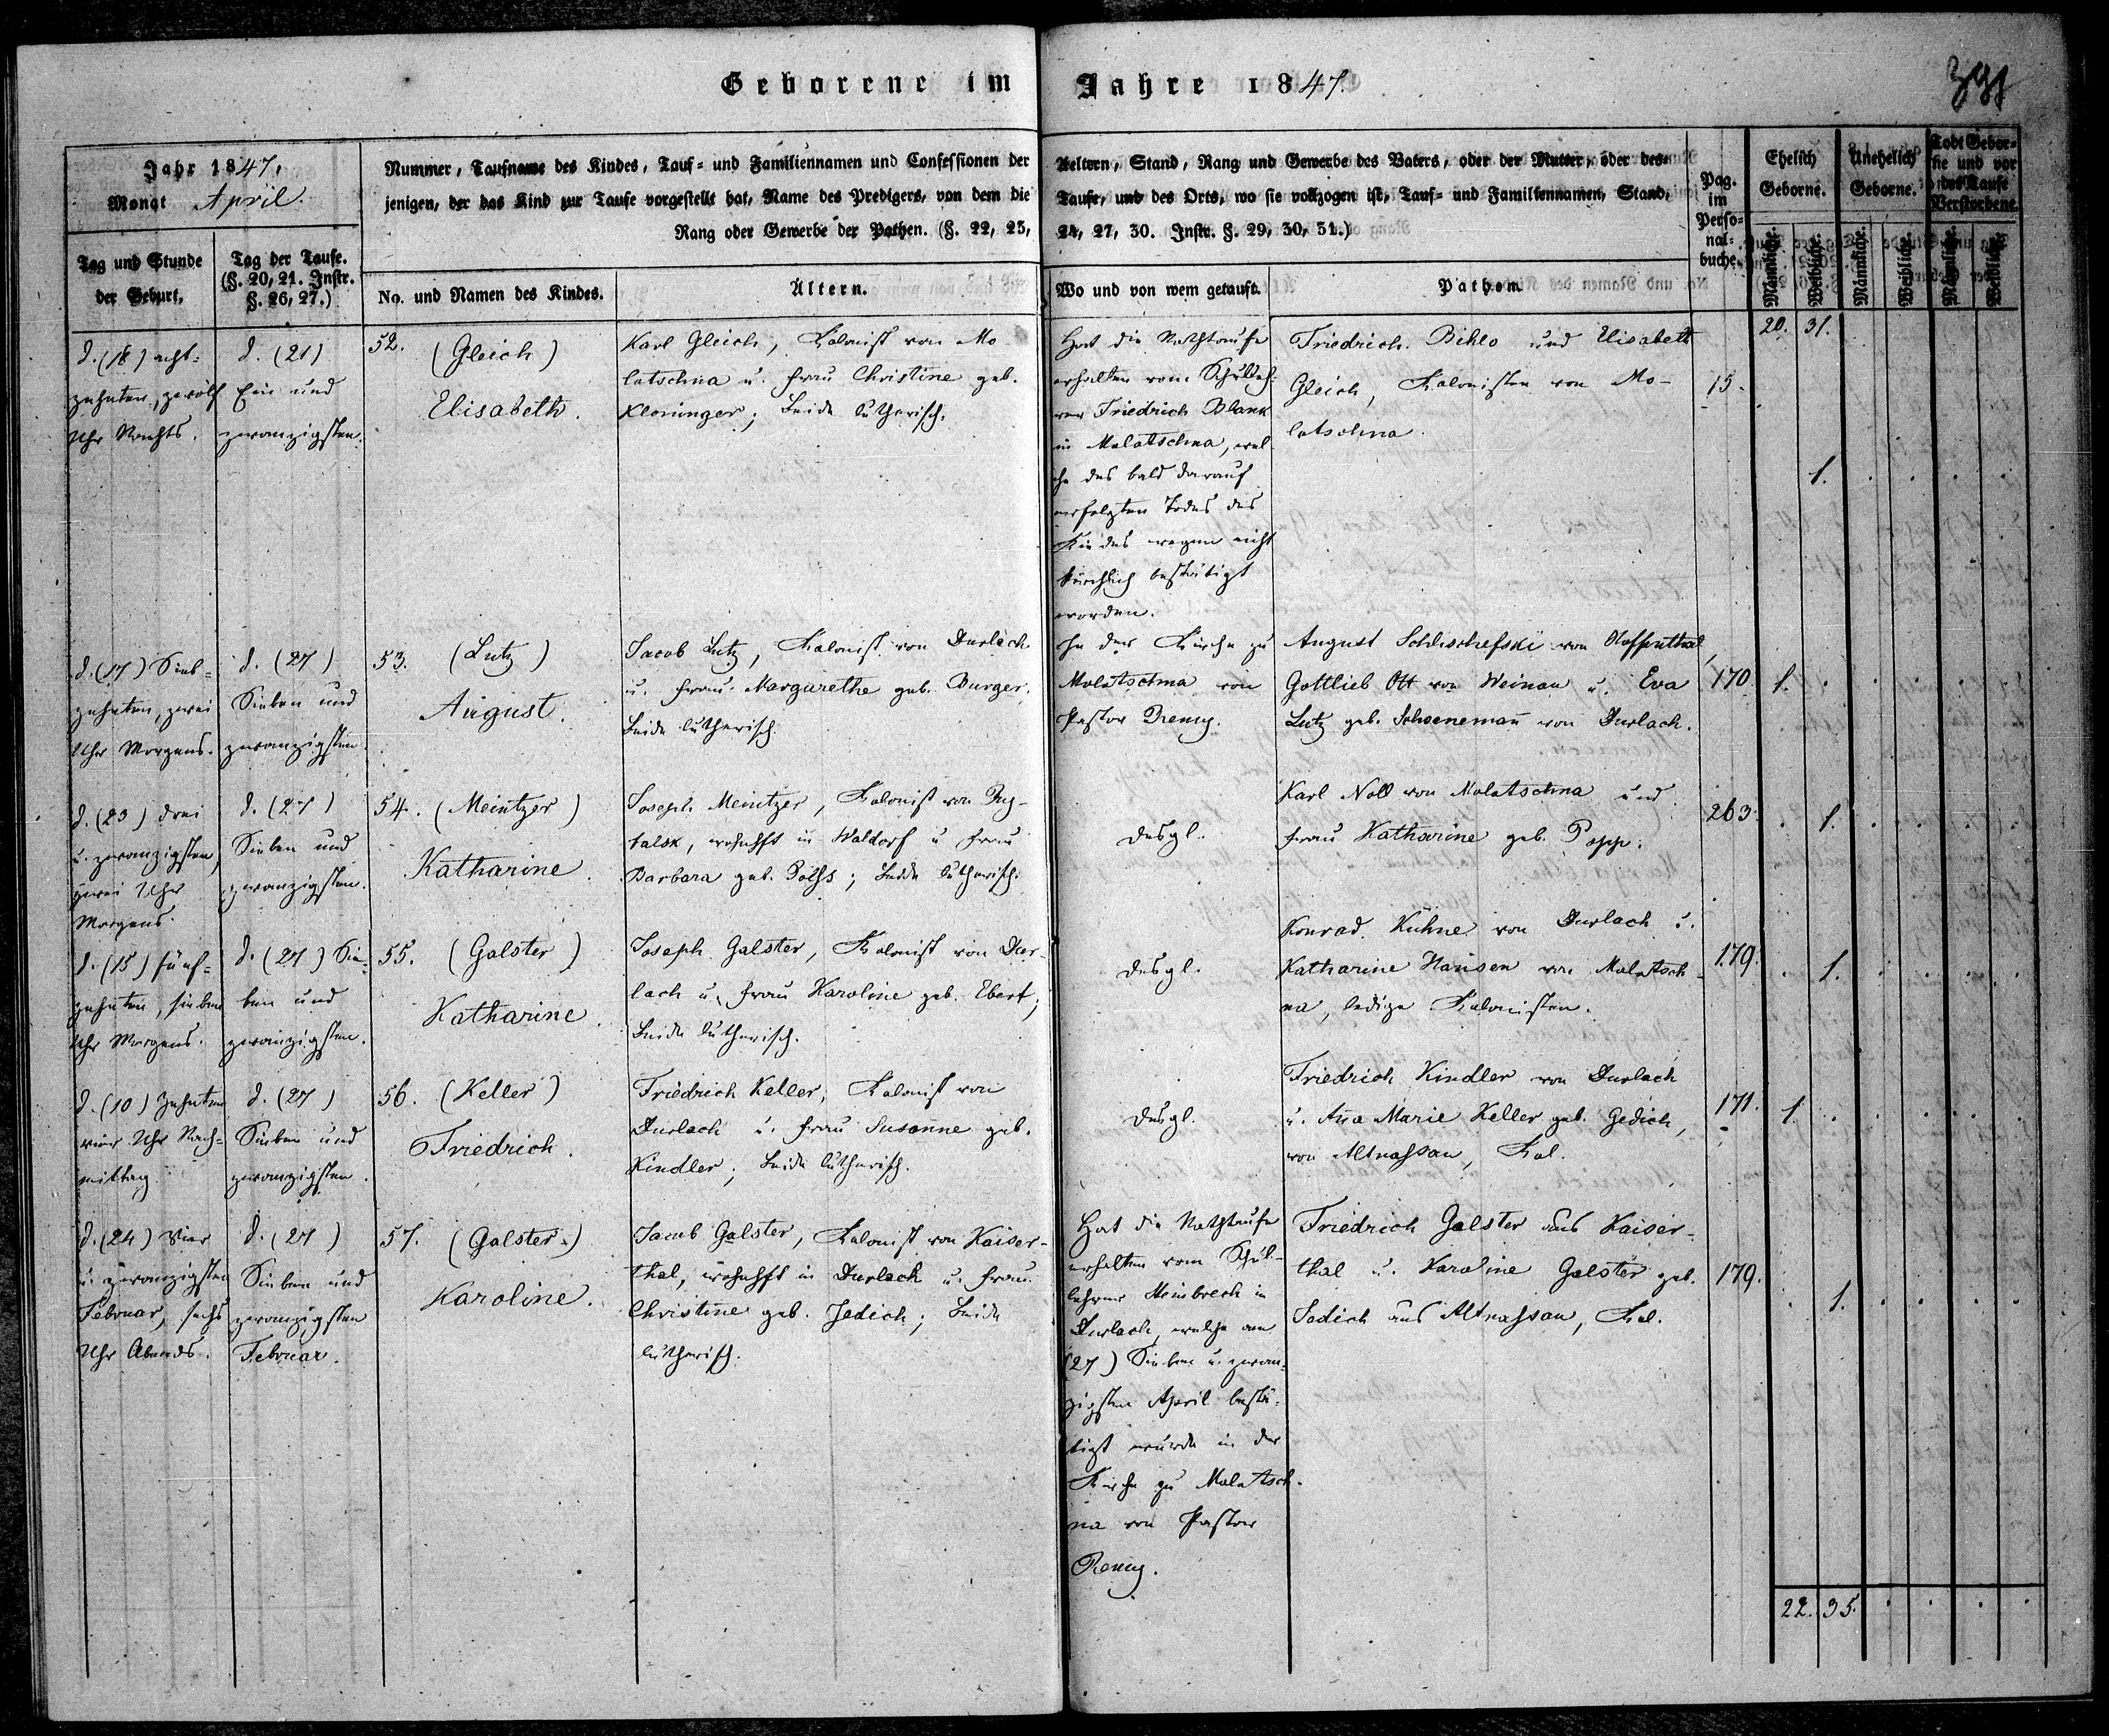 Geborene im Jahre 1847.
Jahr 1847.
Monat April.
Nummer, Taufname des Kindes, Tauf- und Familiennamen und Confessionen der
jenigen, der das Kind zur Taufe vorgestellt hat, Name des Predigers, von dem die
Rang oder Gewerbe der Pathen. (§. 22, 23,
Aeltern, Stand, Rang und Gewerbe des Vaters, oder der Mutter, oder des-
Taufe, und des Orts, wo sie vollzogen ist, Tauf- und Familiennamen, Stand,
24, 27, 30. Instr. §. 29, 30, 31.)
Pag.
im
Perso-
nal-
buche.
Ehelich
Geborne.
Unehelich
Geborne.
Todt Gebor-
ne und vor
der Taufe
Verstorbene.
Tag und Stunde
der Geburt.
Tag der Taufe.
(§. 20, 21. Instr.
§. 26, 27.)
No. und Namen des Kindes.
Altern.
Wo und von wem getauft.
Pathen.
Männliche.
Weibliche.
Männliche.
Weibliche.
Männliche.
Weibliche.
20. 31.
d. (18) acht-
zehnten, zwölf
Uhr Nachts.
d. (21)
Ein und
zwanzigsten.
52. (Gleich)
Elisabeth.
Karl Gleich, Kolonist von Mo
lotschna u. Frau Christine geb.
Kloninger; beide lutherisch.
Hat die Nothtaufe
erhalten vom Schulleh-
rer Friedrich Blank
in Molotschna, wel
che des bald darauf
erfolgten Todes des
Kindes wegen nicht
kirchlich bestätigt
worden.
Friedrich Bihlo und Elisabeth
Gleich, Kolonisten von Mo-
lotschna.
15.
1.
d. (17) Sieb-
zehnten, zwei
Uhr Morgens.
d. (27)
Sieben und
zwanzigsten.
53. (Lutz)
August.
Jacob Lutz, Kolonist von Durlach
u. Frau Margarethe geb. Burger.
beide lutherisch.
In der Kirche zu
Molotschna von
Pastor Remy.
August Schlischefski von Hoffenthal,
Gottlieb Ott von Weinau u. Eva
Lutz geb. Schoenemañ von Durlach.
170. 1.
d. (23) drei
u. zwanzigsten,
zwei Uhr
Morgens
d. (27)
Sieben und
zwanzigsten.
54. (Meintzer)
Katharine.
Joseph Meintzer, Kolonist von
talsk, wohnhft in Waldorf u Frau
Barbara geb. ; beide lutherisch.
desgl.
Karl Noll von Molotschna und
Frau Katharine geb. Popp.
263. 1.
d. (15) fünf-
zehnten, sieben
Uhr Morgens.
d. (27) Sie-
ben und
zwanzigsten.
55. (Galster)
Katharine.
Joseph Galster, Kolonist von Dur-
lach u. Frau Karoline geb. Ebert;
beide lutherisch.
desgl.
Konrad Kühne von Durlach u.
Katharine Hansen von Molotsch-
na, ledige Kolonisten.
179. 1.
d. (10) zehnten
vier Uhr Nach-
mittag.
d. (27)
Sieben und
zwanzigsten.
56. (Keller)
Friedrich.
Friedrich Keller, Kolonist von
Durlach u. Frau Susanne geb.
Kindler; beide lutherisch.
desgl.
Friedrich Kindler von Durlach
u. Aña Marie Keller geb. Gedich,
von Altnassau, Kol.
171. 1.
d. (24) Vier
u. zwanzigsten
Februar, sechs
Uhr Abends.
d. (27)
Sieben und
zwanzigsten
Februar.
57. (Galster.)
Karoline.
Jacob Galster, Kolonist von Kaiser-
thal, wohnhft in Durlach u. Frau
Christine geb. Jedich; beide
lutherisch.
Hat die Nothtaufe
erhalten vom Schul-
lehrer Heinbrech in
Durlach, welche am
(27) Sieben u. zwan-
zigsten April bestä-
tigt wurde in der
Kirche zu Molotsch-
na von Pastor
Remy.
Friedrich Galster aus Kaiser-
thal u. Karoline Galster geb.
Jedich aus Altnassau, Kol.
179. 1.
22. 35.